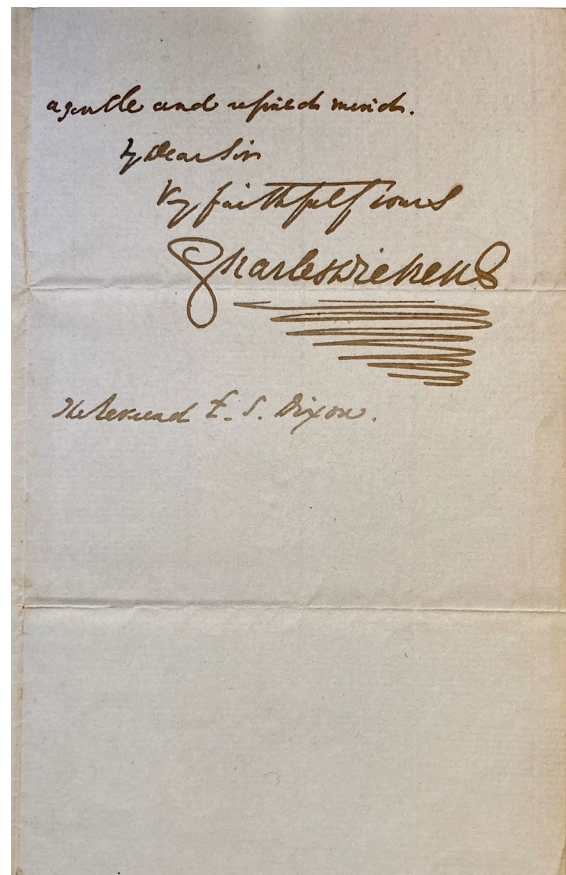 a gentle and refined mind.
My Dear Sir
Very faithfully Yours
Charles Dickens
The Reverend E. S. Dixon.